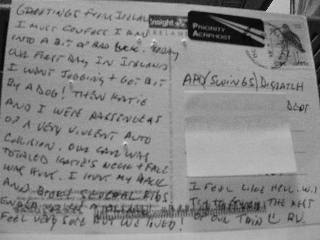 GREETINGS FROM IRELAND
I MUST CONFESS I AM
INTO A BIT OF BAD LUCK. TODAY
OUR FIRST DAY IN IRELAND
I WENT JOGGING & GOT BIT
BY A DOG! THEN KATIE
AND I WERE PASSENGERS
OF A VERY VIOLENT AUTO
COLLISION. OUR CAR WAS
TOTALED KATIE'S NECK & FACE
WAS HURT. I HURT MY BACK
AND SEVERAL RIBS
FEEL VERY SORE BUT WE LIVED!
insight
IRELAND
PRIORITY
AERPHOST
APO/SWINGS/DISPATCH
DEPT
I FEEL LIKE HELL.
THE REST
OF OUR TRIP